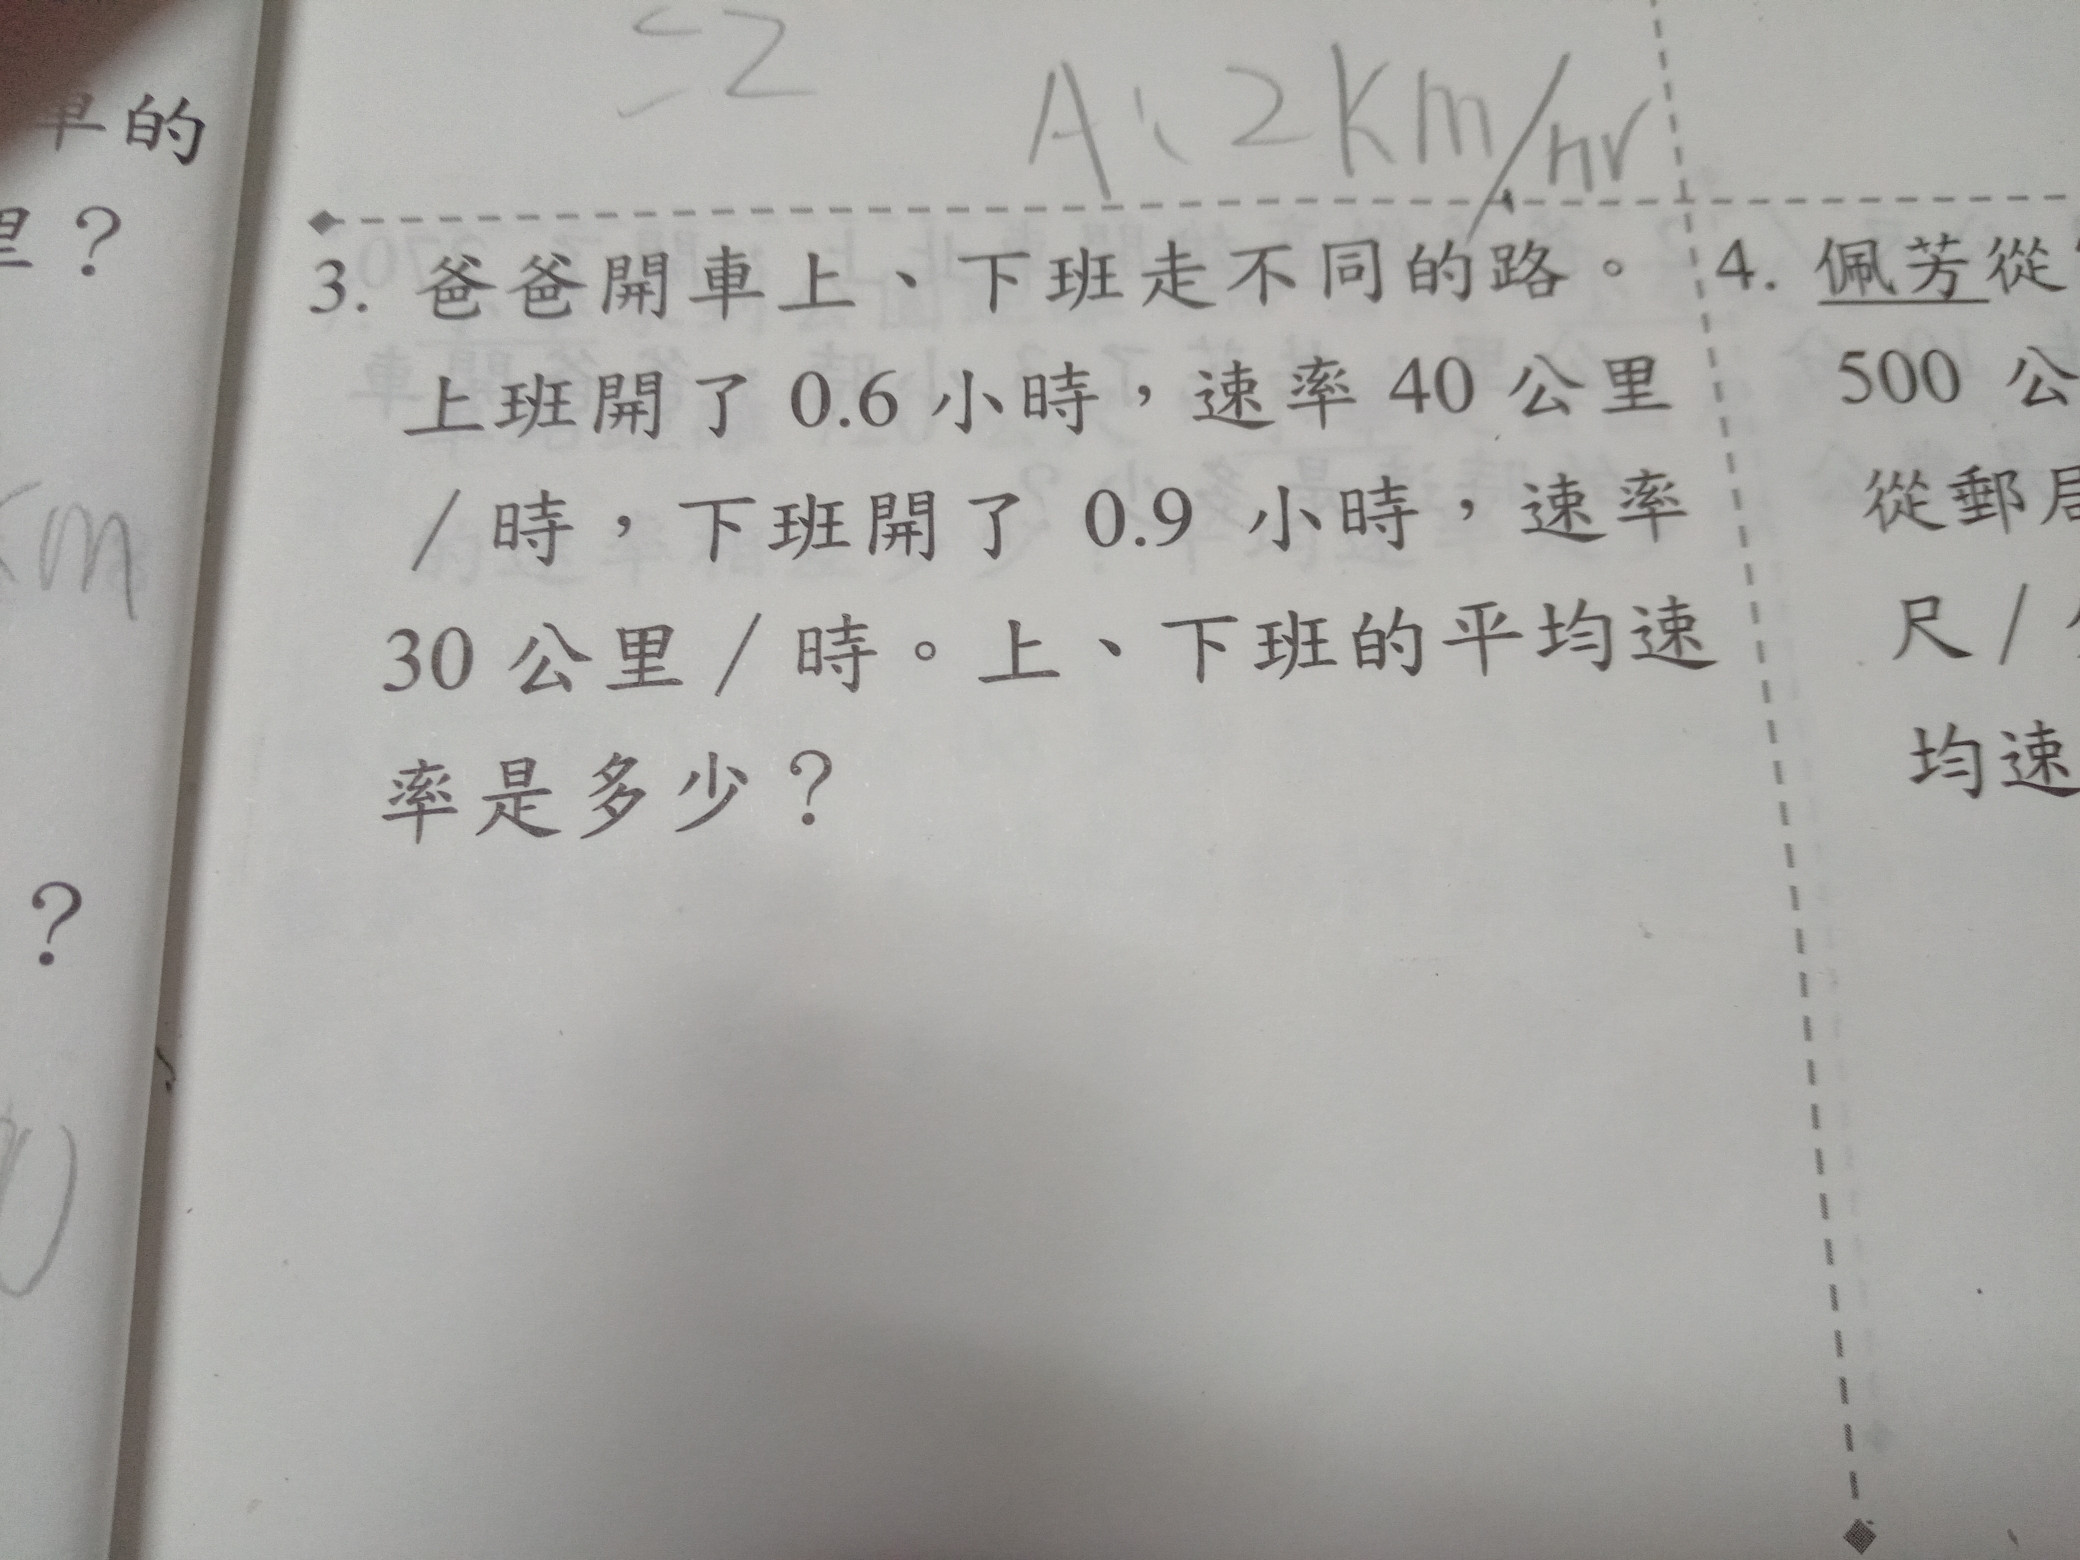 車的
里？
km
？
52
A: 2km/hr
3. 爸爸開車上、下班走不同的路。
上班開了 0.6 小時，速率 40 公里
/ 時，下班開了 0.9 小時，速率
30 公里 / 時。上、下班的平均速
率是多少？
4. 佩芳從
500 公
從郵局
尺 /
均速